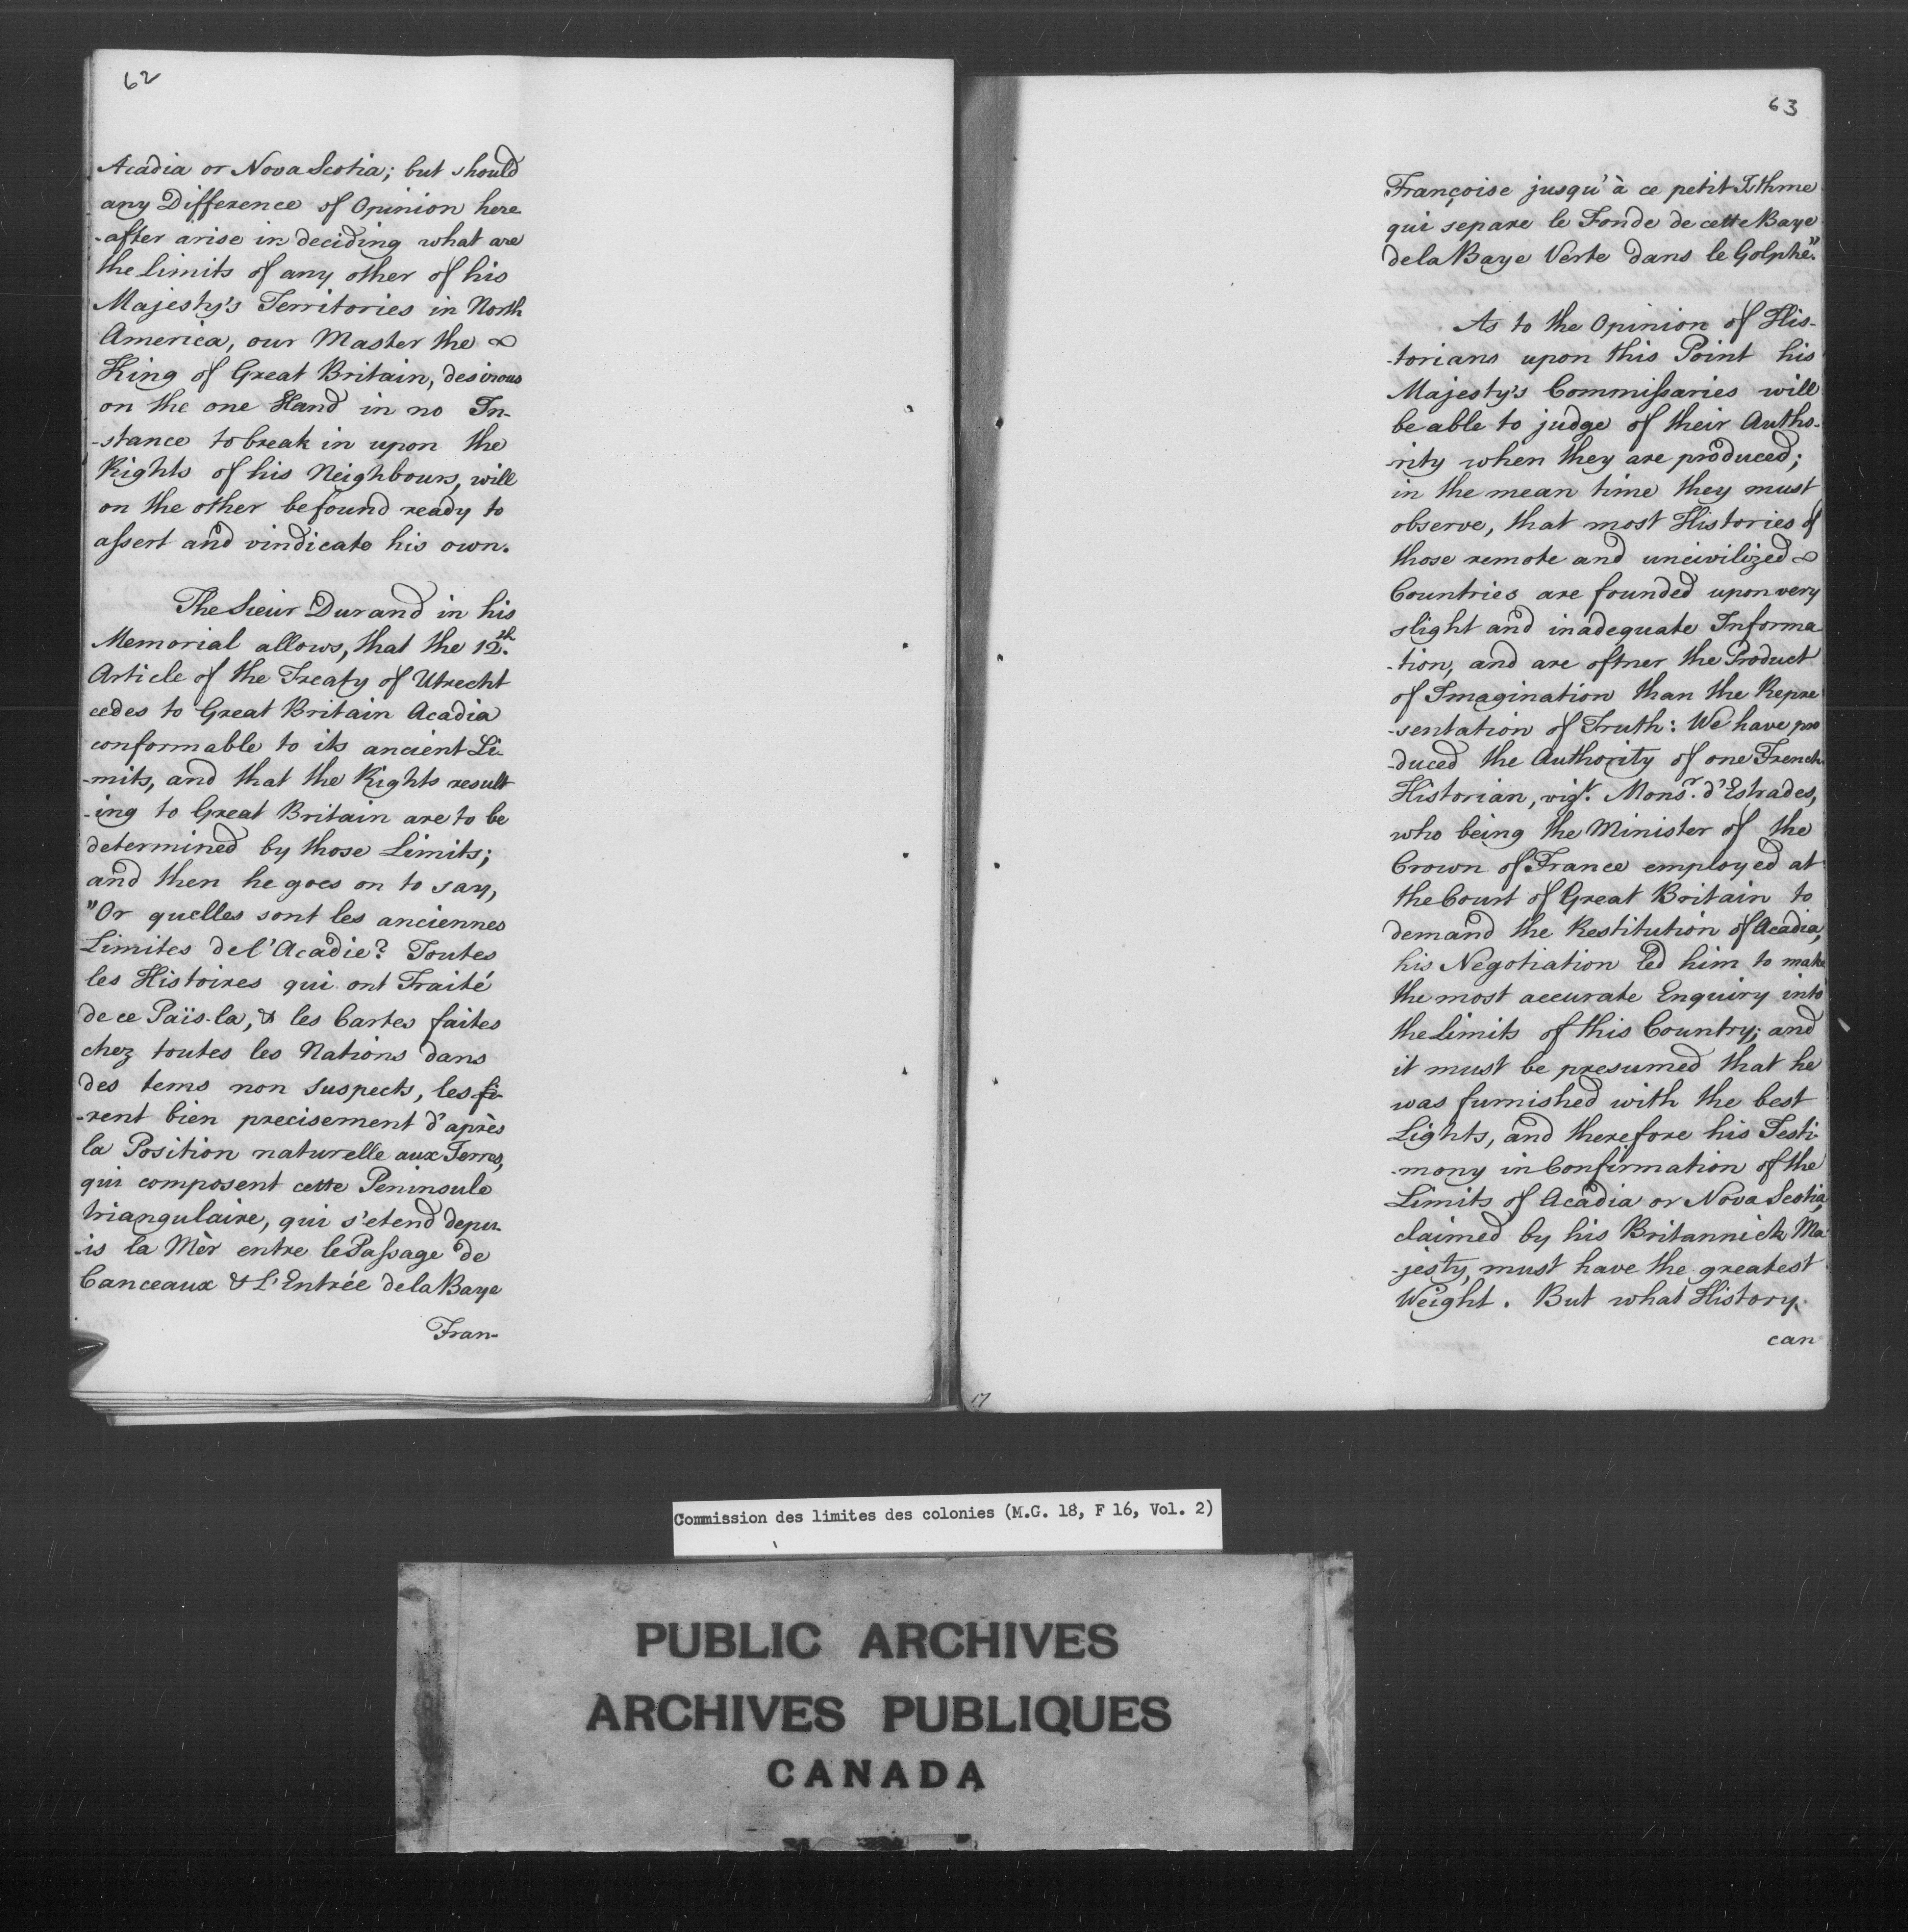 62
Acadia or Nova Scotia; but should
any Difference of Opinion here
-after arise in deciding what are
the limits of any other of his
Majesty's Territories in North
America, our Master the
King of Great Britain, desirous
on the one Hand in no In-
-stance to break in upon the
Rights of his Neighbours, will
on the other be found ready to
assert and vindicate his own.
The Sieur Durand in his
Memorial allows, that the 12.th
Article of the Treaty of Utrecht
cedes to Great Britain Acadia
conformable to its ancient Li-
-mits, and that the Rights result
-ing to Great Britain are to be
determined by those Limits;
and then he goes on to say,
"Or quelles sont les anciennes
Limites de l'Acadie? Toutes
les Histoires qui ont Traité
de ce Païs-la, & les Cartes faites
chez toutes les Nations dans
des tems non suspects, les fi-
-rent bien precisement d'après
la Position naturelle aux Terres,
qui composent cette Peninsule
triangulaire, qui s'etend depu-
-is la Mèr entre le Passage de
Canceaux & L'Entrée de la Baye
Fran-
63
Françoise jusqu'à ce petit Isthme
qui separe le Fonde de cette Baye
de la Baye Verte dans le Golphe."
As to the Opinion of His-
-torians upon this Point his
Majesty's Commissaries will
be able to judge of their Autho-
-rity when they are produced;
in the mean time they must
observe, that most Histories of
those remote and uncivilized
Countries are founded upon very
slight and inadequate Informa
-tion, and are oftner the Product
of Imagination than the Repre
-sentation of Truth: We have pro
-duced the Authority of one French
Historian, vizt. Monsr. d'Estrades,
who being the Minister of the
Crown of France employed at
the Court of Great Britain to
demand the Restitution of Acadia,
his Negotiation led him to make
the most accurate Enquiry into
the Limits of this Country; and
it must be presumed that he
was furnished with the best
Lights, and therefore his Testi-
-mony in Confirmation of the
Limits of Acadia or Nova Scotia,
claimed by his Britannick Ma
-jesty, must have the greatest
Weight. But what History
can
17
Commission des limites des colonies (M.G. 18, F 16, Vol. 2)
PUBLIC ARCHIVES
ARCHIVES PUBLIQUES
CANADA